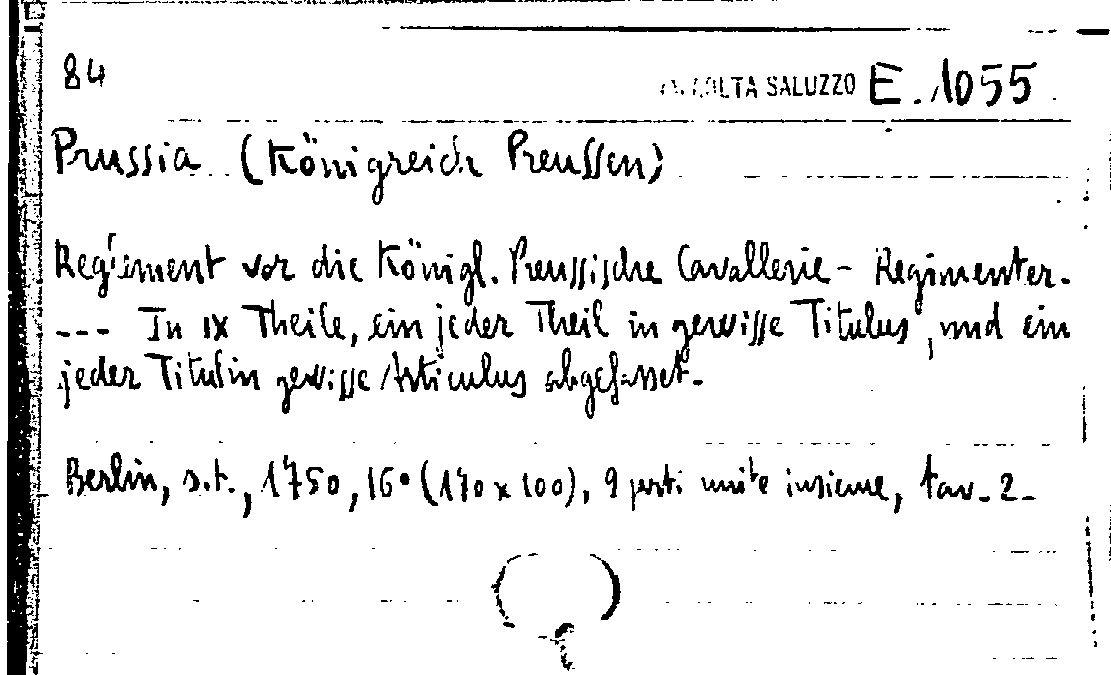 84 RACCOLTA SALUZZO E. 1055
Prussia (Königreich Preussen)
Reglement vor die Königl. Preussische Cavallerie - Regimenter.
--- In IX Theile, ein jeder Theil in gewisse Titulus, und ein
jeder Titul in gewisse Articulus abgefasset.
Berlin, s.t., 1750, 16° (170 x 100), 9 parti unite insieme, tav. 2.